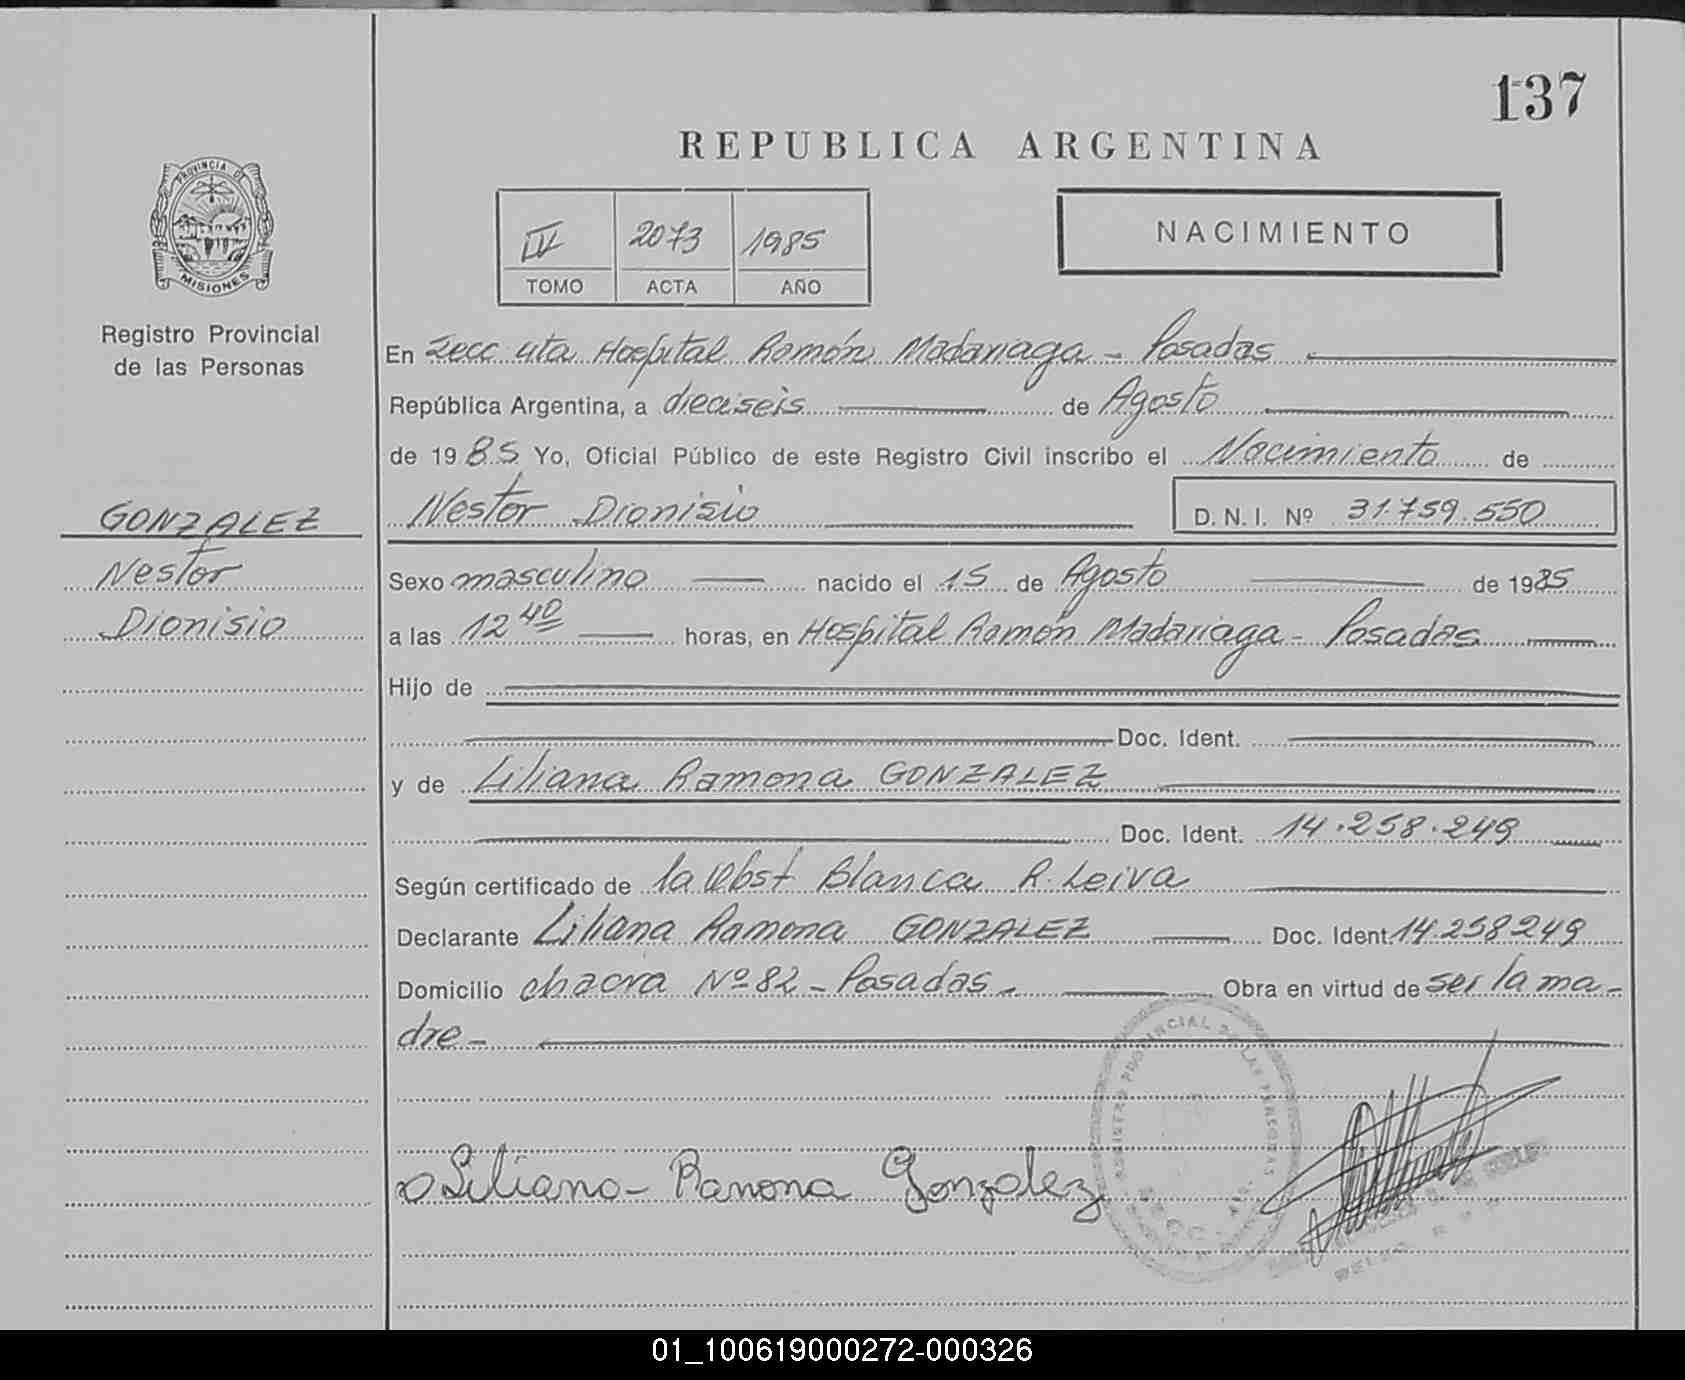 137
REPUBLICA ARGENTINA
PROVINCIA DE
MISIONES
Registro Provincial
de las Personas
IV 2073 1985
TOMO ACTA AÑO
NACIMIENTO
En Secc 4ta Hospital Ramón Madariaga - Posadas
República Argentina, a dieciseis de Agosto
de 1985 Yo, Oficial Público de este Registro Civil inscribo el Nacimiento de
GONZALEZ
Nestor
Dionisio
Nestor Dionisio D. N. I. Nº 31.759.550
Sexo masculino nacido el 15 de Agosto de 1985
a las 12 40 horas, en Hospital Ramón Madariaga - Posadas
Hijo de
Doc. Ident.
y de Liliana Ramona GONZALEZ
Doc. Ident. 14.258.249
Según certificado de la Obst Blanca R. Leiva
Declarante Liliana Ramona GONZALEZ Doc. Ident. 14.258249
Domicilio chacra Nº 82 - Posadas - Obra en virtud de ser la ma-
dre -
REGISTRO PROVINCIAL DE LAS PERSONAS
Liliana - Ramona Gonzalez
01_100619000272-000326